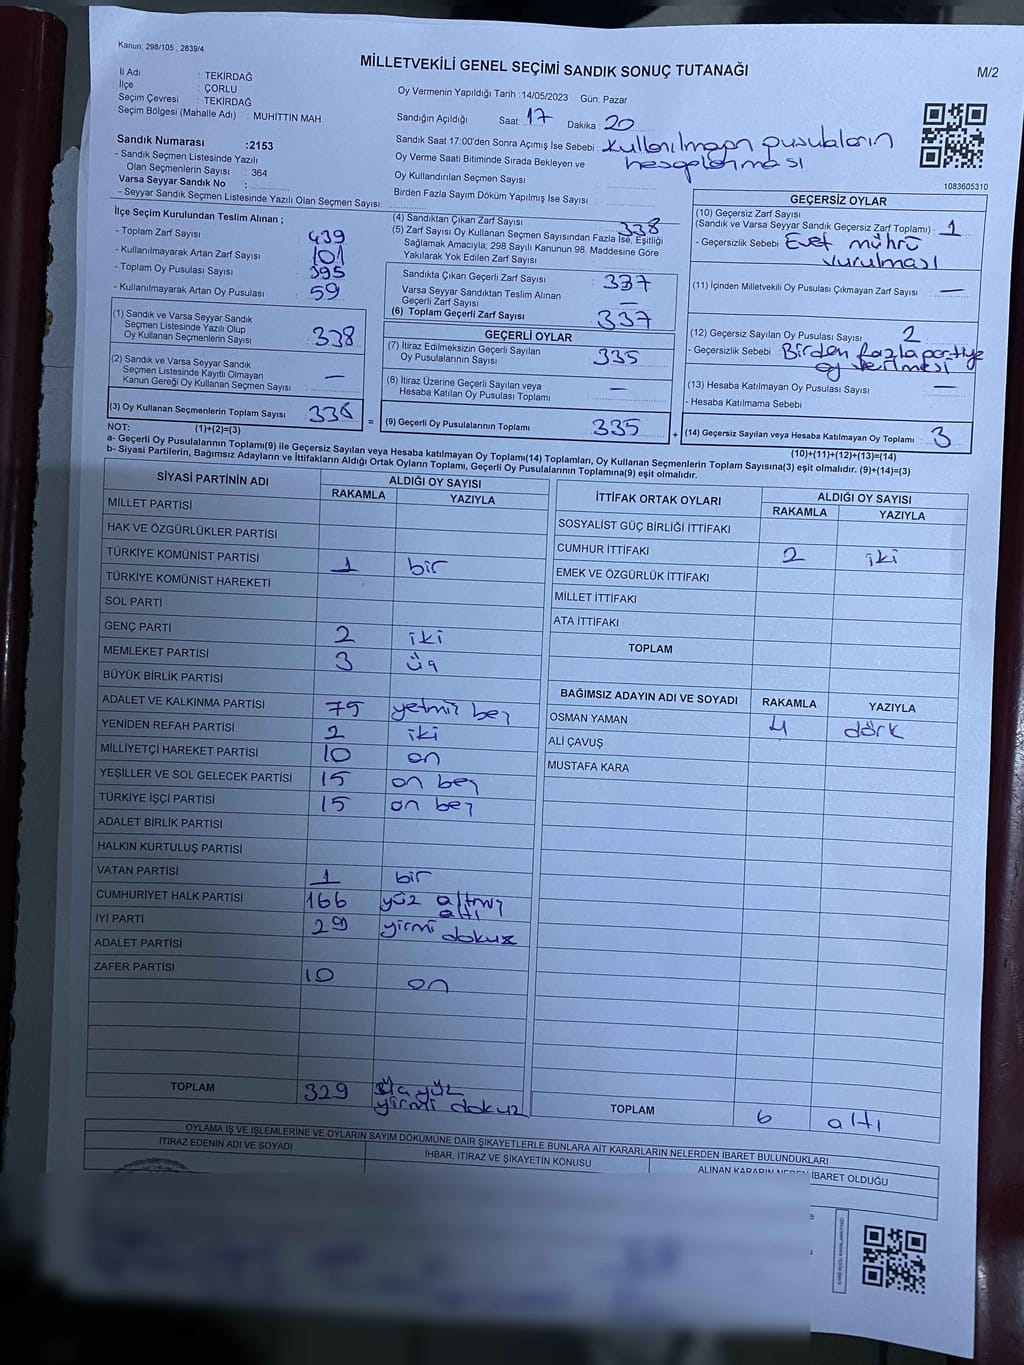 Kanun, 298/105 , 2839/4
MİLLETVEKİLİ GENEL SEÇİMİ SANDIK SONUÇ TUTANAĞI
M/2
İl Adı : TEKİRDAĞ
İlçe : ÇORLU
Seçim Çevresi : TEKİRDAĞ
Seçim Bölgesi (Mahalle Adı) : MUHİTTİN MAH.
Oy Vermenin Yapıldığı Tarih :14/05/2023 Gün: Pazar
Sandığın Açıldığı Saat: 17 Dakika : 20
Sandık Saat 17:00'den Sonra Açımış İse Sebebi : kullanılmayan pusulaların hesaplanması
Oy Verme Saati Bitiminde Sırada Bekleyen ve
Oy Kullandırılan Seçmen Sayısı
Birden Fazla Sayım Döküm Yapılmış İse Sayısı :
1083605310
Sandık Numarası :2153
- Sandık Seçmen Listesinde Yazılı
Olan Seçmenlerin Sayısı : 364
Varsa Seyyar Sandık No :
- Seyyar Sandık Seçmen Listesinde Yazılı Olan Seçmen Sayısı:
İlçe Seçim Kurulundan Teslim Alınan ;
- Toplam Zarf Sayısı : 439
- Kullanılmayarak Artan Zarf Sayısı : 101
- Toplam Oy Pusulası Sayısı : 395
- Kullanılmayarak Artan Oy Pusulası : 59
(1) Sandık ve Varsa Seyyar Sandık
Seçmen Listesinde Yazılı Olup
Oy Kullanan Seçmenlerin Sayısı : 338
(2) Sandık ve Varsa Seyyar Sandık
Seçmen Listesinde Kayıtlı Olmayan
Kanun Gereği Oy Kullanan Seçmen Sayısı : —
(3) Oy Kullanan Seçmenlerin Toplam Sayısı : 338
(1)+(2)=(3)
(4) Sandıktan Çıkan Zarf Sayısı : 338
(5) Zarf Sayısı Oy Kullanan Seçmen Sayısından Fazla İse, Eşitliği
Sağlamak Amacıyla; 298 Sayılı Kanunun 98. Maddesine Göre
Yakılarak Yok Edilen Zarf Sayısı
Sandıkta Çıkan Geçerli Zarf Sayısı : 337
Varsa Seyyar Sandıktan Teslim Alınan
Geçerli Zarf Sayısı : —
(6) Toplam Geçerli Zarf Sayısı : 337
GEÇERLİ OYLAR
(7) İtiraz Edilmeksizin Geçerli Sayılan
Oy Pusulalarının Sayısı : 335
(8) İtiraz Üzerine Geçerli Sayılan veya
Hesaba Katılan Oy Pusulası Toplamı : —
= (9) Geçerli Oy Pusulalarının Toplamı : 335
GEÇERSİZ OYLAR
(10) Geçersiz Zarf Sayısı
(Sandık ve Varsa Seyyar Sandık Geçersiz Zarf Toplamı) : 1
- Geçersizlik Sebebi : Evet mührü vurulması
(11) İçinden Milletvekili Oy Pusulası Çıkmayan Zarf Sayısı : —
(12) Geçersiz Sayılan Oy Pusulası Sayısı : 2
- Geçersizlik Sebebi : Birden fazla partiye oy verilmesi
(13) Hesaba Katılmayan Oy Pusulası Sayısı : —
- Hesaba Katılmama Sebebi :
+ (14) Geçersiz Sayılan veya Hesaba Katılmayan Oy Toplamı : 3
(10)+(11)+(12)+(13)=(14)
NOT:
a- Geçerli Oy Pusulalarının Toplamı(9) ile Geçersiz Sayılan veya Hesaba katılmayan Oy Toplamı(14) Toplamları, Oy Kullanan Seçmenlerin Toplam Sayısına(3) eşit olmalıdır. (9)+(14)=(3)
b- Siyasi Partilerin, Bağımsız Adayların ve İttifakların Aldığı Ortak Oyların Toplamı, Geçerli Oy Pusulalarının Toplamına(9) eşit olmalıdır.
SİYASİ PARTİNİN ADI ALDIĞI OY SAYISI
RAKAMLA YAZIYLA
MİLLET PARTİSİ
HAK VE ÖZGÜRLÜKLER PARTİSİ
TÜRKİYE KOMÜNİST PARTİSİ 1 bir
TÜRKİYE KOMÜNİST HAREKETİ
SOL PARTİ
GENÇ PARTİ 2 iki
MEMLEKET PARTİSİ 3 üç
BÜYÜK BİRLİK PARTİSİ
ADALET VE KALKINMA PARTİSİ 75 yetmiş beş
YENİDEN REFAH PARTİSİ 2 iki
MİLLİYETÇİ HAREKET PARTİSİ 10 on
YEŞİLLER VE SOL GELECEK PARTİSİ 15 on beş
TÜRKİYE İŞÇİ PARTİSİ 15 on beş
ADALET BİRLİK PARTİSİ
HALKIN KURTULUŞ PARTİSİ
VATAN PARTİSİ 1 bir
CUMHURİYET HALK PARTİSİ 166 yüz altmış altı
İYİ PARTİ 29 yirmi dokuz
ADALET PARTİSİ
ZAFER PARTİSİ 10 on
TOPLAM 329 üç yüz yirmi dokuz
İTTİFAK ORTAK OYLARI ALDIĞI OY SAYISI
RAKAMLA YAZIYLA
SOSYALİST GÜÇ BİRLİĞİ İTTİFAKI
CUMHUR İTTİFAKI 2 iki
EMEK VE ÖZGÜRLÜK İTTİFAKI
MİLLET İTTİFAKI
ATA İTTİFAKI
TOPLAM
BAĞIMSIZ ADAYIN ADI VE SOYADI RAKAMLA YAZIYLA
OSMAN YAMAN 4 dörk
ALİ ÇAVUŞ
MUSTAFA KARA
TOPLAM 6 altı
OYLAMA İŞ VE İŞLEMLERİNE VE OYLARIN SAYIM DÖKÜMÜNE DAİR ŞİKAYETLERLE BUNLARA AİT KARARLARIN NELERDEN İBARET BULUNDUKLARI
İTİRAZ EDENİN ADI VE SOYADI
İHBAR, İTİRAZ VE ŞİKAYETİN KONUSU
ALINAN KARARIN NEDEN İBARET OLDUĞU